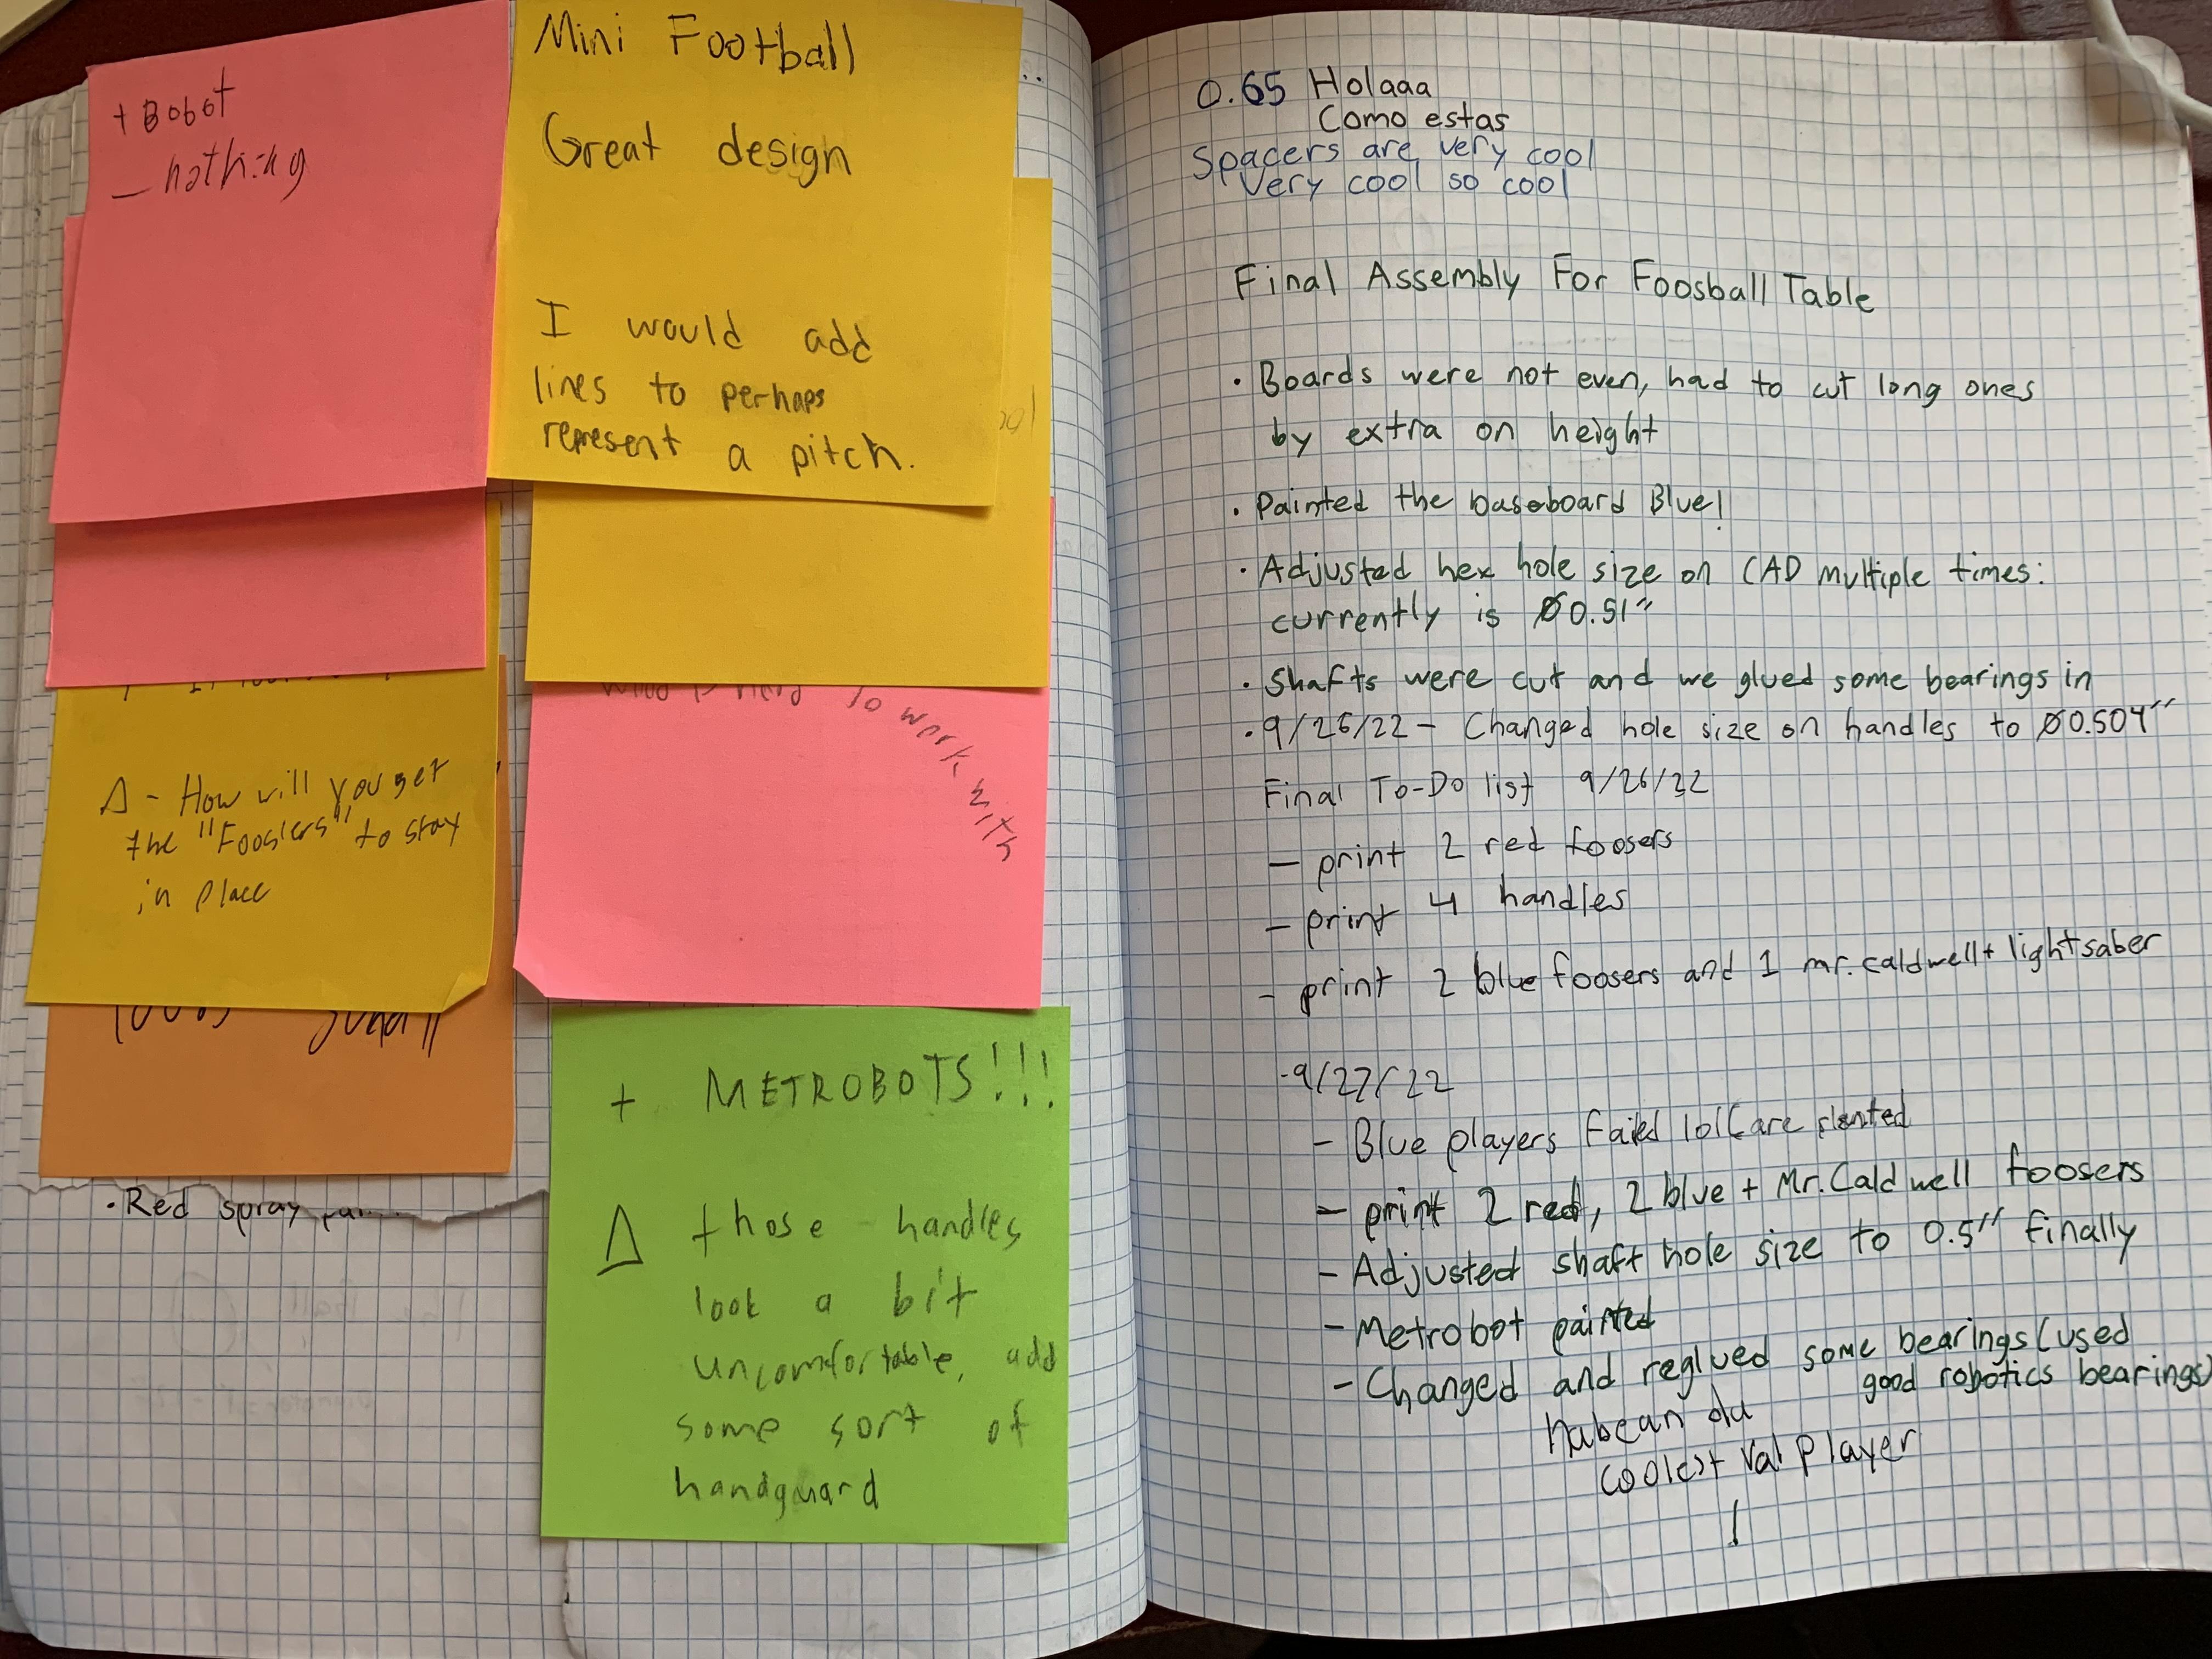 + Bobot
- nothing
Δ - How will you get
the "Fooslers" to stay
in place
• Red spray
Mini Football
Great design
I would add
lines to perhaps
represent a pitch.
to work with
+ METROBOTS!!!
Δ those handles
look a bit
uncomfortable, add
some sort of
handguard
0.65 Holaaa
Como estas
Spacers are very cool
Very cool so cool
Final Assembly For Foosball Table
• Boards were not even, had to cut long ones
by extra on height
• Painted the baseboard Blue!
• Adjusted hex hole size on CAD multiple times:
currently is Ø0.51"
• Shafts were cut and we glued some bearings in
• 9/26/22 - Changed hole size on handles to Ø0.504"
Final To-Do list 9/26/22
- print 2 red foosers
- print 4 handles
- print 2 blue foosers and 1 mr. caldwell + lightsaber
-9/27/22
- Blue players Failed lol (are slanted
- print 2 red, 2 blue + Mr. Caldwell foosers
- Adjusted shaft hole size to 0.5" finally
- Metrobot painted
- Changed and reglued some bearings (used
good robotics bearings)
coolest Val Player